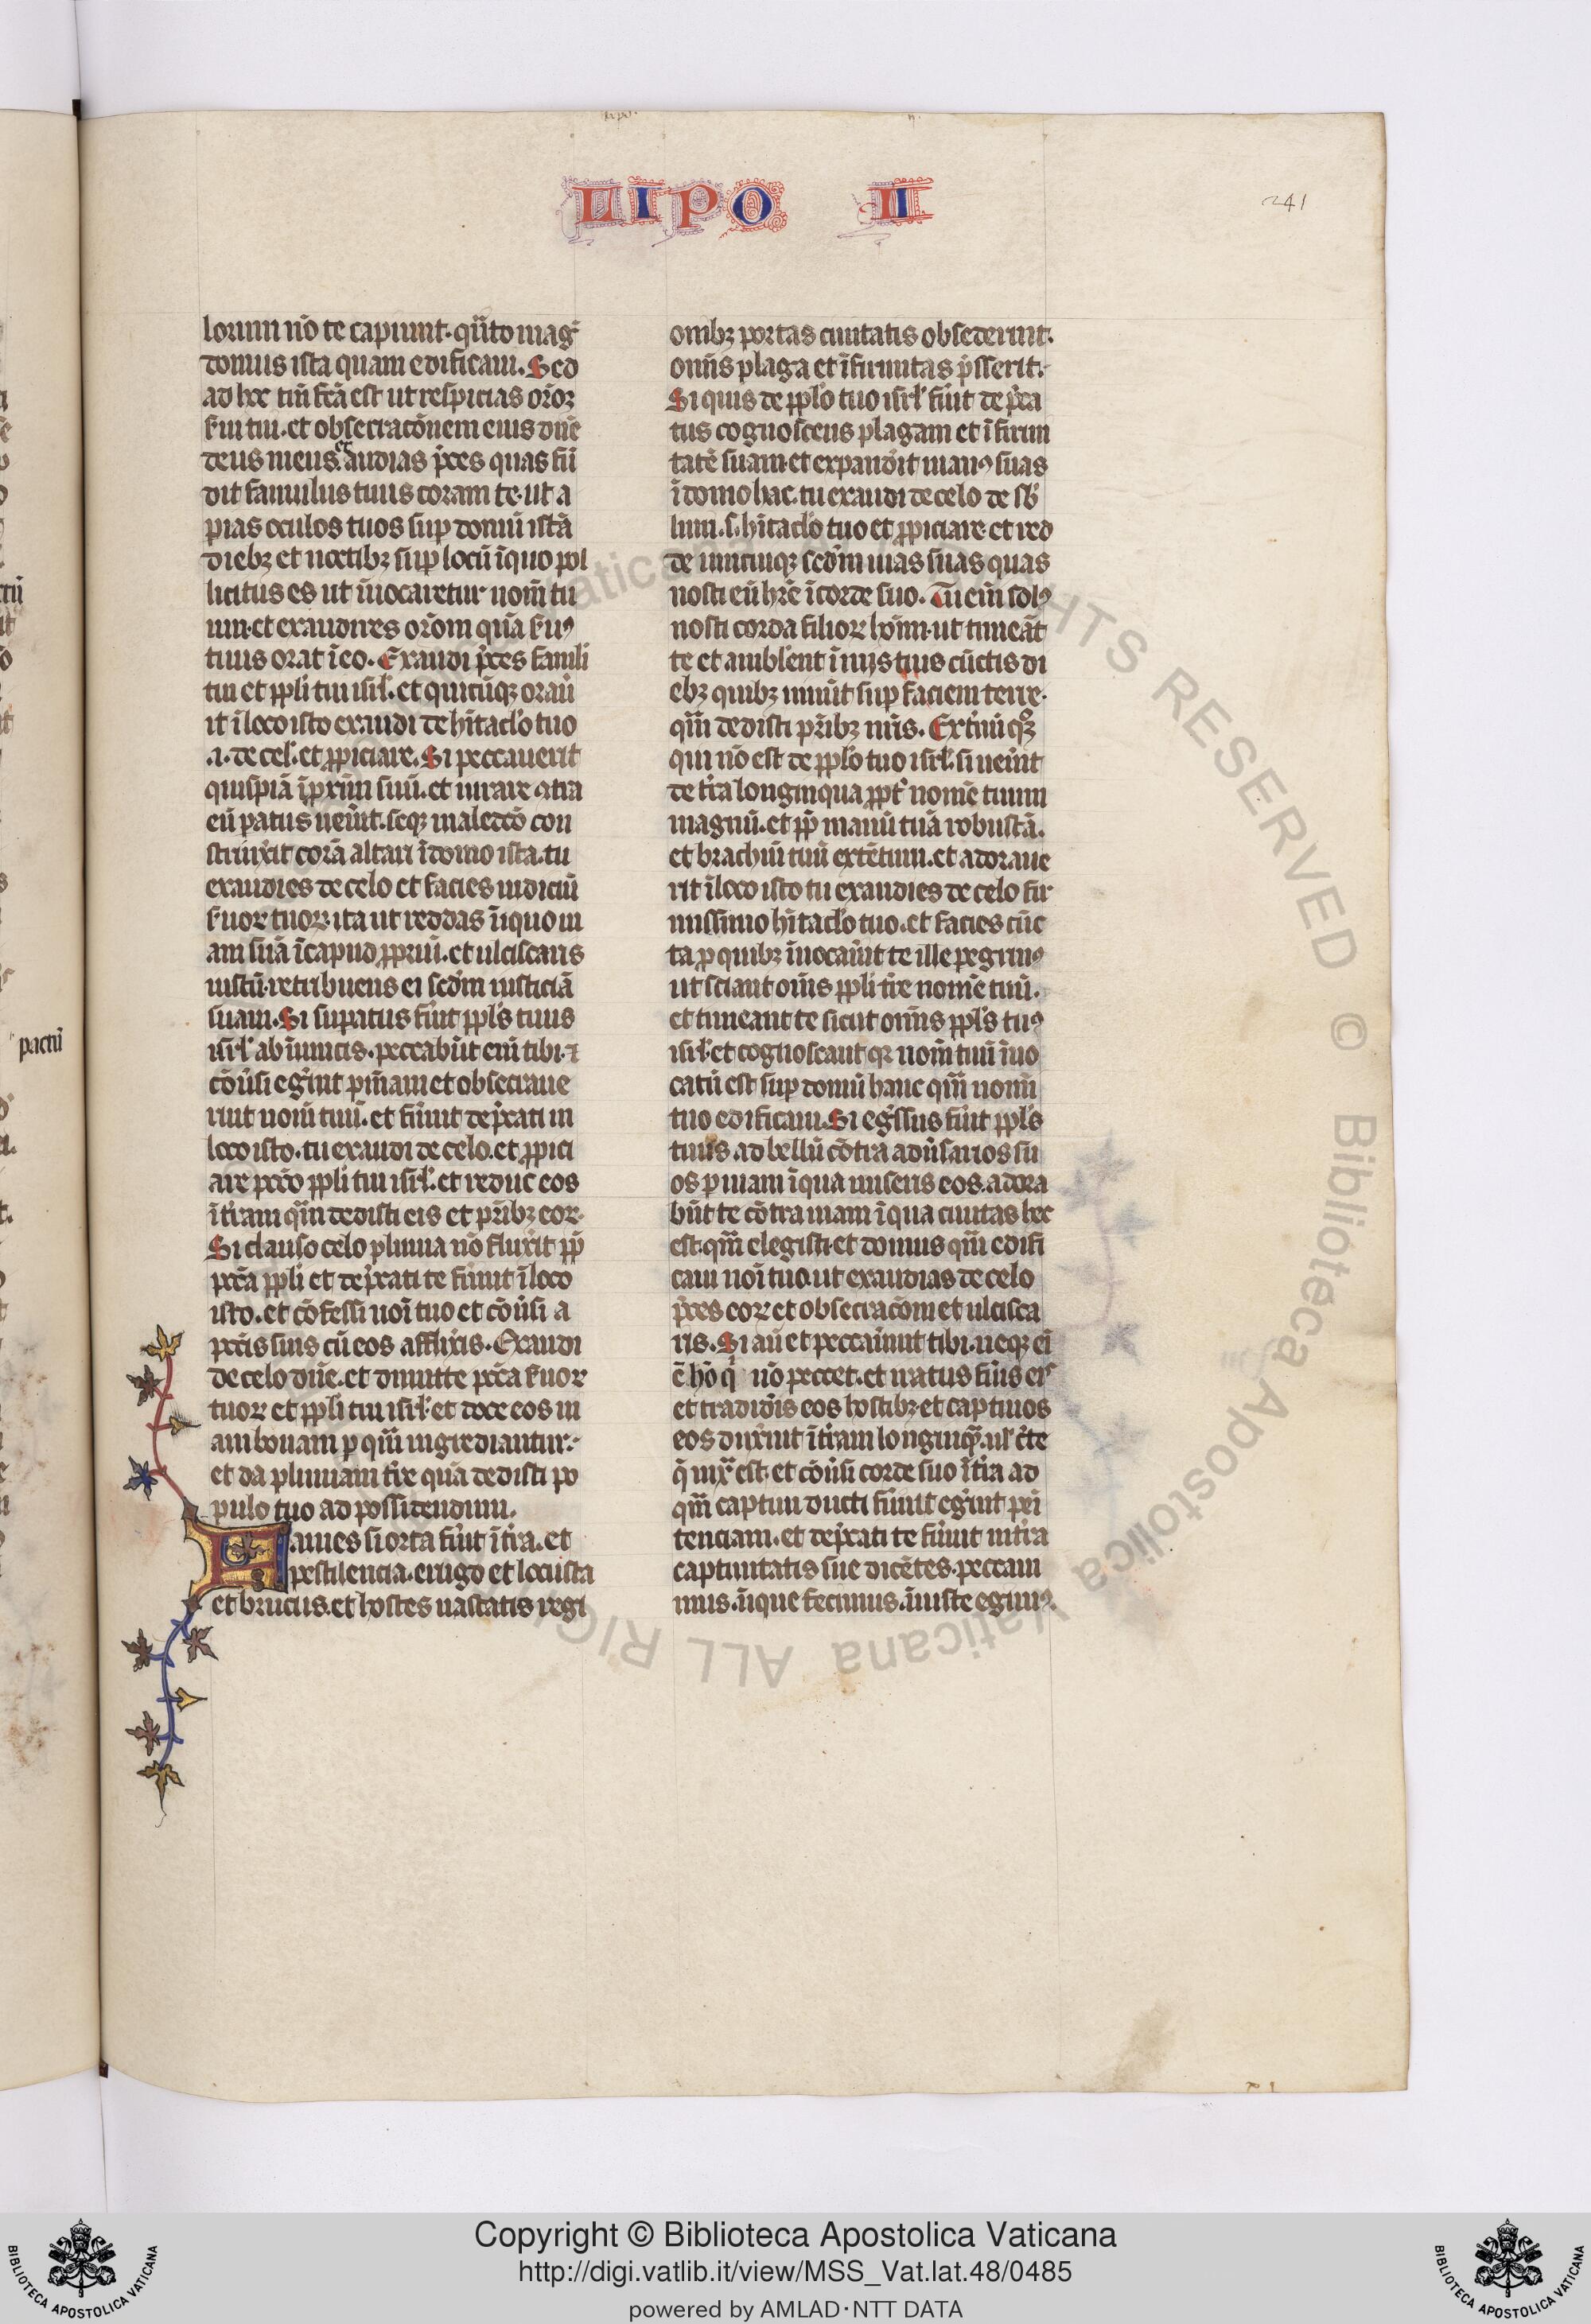 LIPO II
241
lorum nō te capiunt. qūto mag̃
domus ista quam edificaui. Sed
ad hoc tm̄ fc̄a est ut respicias or̄oꝝ
ẜui tui. et obsecracōnem eius dn̄e
deus meus. et audias p̄ces quas fū
dit famulus tuus coram te. ut a
pias oculos tuos suꝑ domū istā
diebꝫ et noctibꝫ suꝑ locū ī quo pol
licitus es ut īuocaretur nom̄ tu
um. et exaudires or̄om quā ẜuꝯ
tuus orat ī eo. Exaudi p̄ces famli
tui et ppl̄i tui isrl̄. et quicūqꝫ orau̇
it ī loco isto exaudi de hītacl̄o tuo
.i. de cel̄. et ꝓpiciare. Si peccauerit
quispiā ī ꝓxim̄ suū. et iurare ꝯtra
eū patus uen̄it. seqꝫ maledcō con
strinx̄it corā altari ī domo ista. tu
exaudies de celo et facies iudiciū
ẜuoꝝ tuoꝝ ita ut reddas īiquo ui
am suā ī capud ꝓpriū. et ulciscaris
iustū. retribuens ei scd̄m iusticiā
suam. Si supatus fūit ppl̄s tuus
isrl̄ ab inimicis. peccabūt eni tibi. ⁊
cōu̇si eḡint pn̄iam et obsecraue
rint nom̄ tuū. et fūint dep̄cati in
loco isto. tu exaudi de celo. et ꝓpici
are pccō ppl̄i tui isrl̄. et reduc eos
ī tr̄am qm̄ dedisti eis et pr̄ibꝫ eoꝝ.
Si clauso celo pluuia nō flux̄it ꝓp̄
pcc̄a ppl̄i et dep̄cati te fūint ī loco
isto. et cōfessi noī tuo et cōu̇si a
pccīs suis cū eos afflix̄is. Exaudi
de celo dn̄e. et dimitte pcc̄a ẜuoꝝ
tuoꝝ et ppl̄i tui isrl̄. et doce eos ui
am bonam ꝑ qm̄ ingrediantur.
et da pluuiam tr̄e quā dedisti po
pulo tuo ad possidendum.
Fames si orta fūit ī tr̄a. et
pestilencia. erugo et locusta
et brucus. et hostes uastatis regi
om̄ibꝫ portas ciuitatis obsederint.
om̄is plaga et īfirmitas p̄sserit.
Si quis de ppl̄o tuo isrl̄ fūit dep̄ca
tus cognoscens plagam et īfirmi
tatē suam. et expand̄it manꝯ suas
ī domo hac. tu exaudi de celo de sb̄
limi. s. hītacl̄o tuo et ꝓpiciare. et red
de unicuiqꝫ scd̄m uias suas quas
nosti eū hr̄e ī corde suo. Tu eni solꝯ
nosti corda filioꝝ hōim. ut timeāt
te et ambl̄ent ī uiis tuis cūctis di
ebꝫ quibꝫ uiuūt suꝑ faciem terre.
qm̄ dedisti pr̄ibꝫ nr̄is. Extn̄ū qꝫ
qui nō est de ppl̄o tuo isrl̄. si uen̄it
de tr̄a longinqua ꝓpt̄ nomē tuum
magnū. et ꝓp̄ manū tuā robustā.
et brachiū tuū extētum. et adoraue
rit ī loco isto tu exaudies de celo fir
missimo hītacl̄o tuo. et facies cūc
ta ꝓ quibꝫ īuocau̇it te ille pegrinꝯ
ut sciant om̄s ppl̄i tr̄e nomē tuū.
et timeant te sicut om̄is ppl̄s tuꝯ
isrl̄. et cognoscant qꝛ nom̄ tuū īuo
catū est suꝑ domū hanc qm̄ nomī
tuo edificaui. Si egssus fūit ppl̄s
tuus ad bellū cōtra adu̇sarios su
os ꝑ uiam ī qua miseris eos. adora
būt te cōtra uiam ī qua ciuitas hec
est. qm̄ elegisti. et domus qm̄ edifi
caui noī tuo. ut exaudias de celo
p̄ces eoꝝ et obsecracōm et ulcisca
ris. Si aū et peccau̇int tibi. neqꝫ eī
ē hō q̇ nō peccet. et iratus fūis eis
et tradid̄is eos hostibꝫ. et captiuos
eos dux̄int ī tr̄am longinqꝫ. ul̄ c̄te
q̄ iux̄ est. et cōu̇si corde suo ī tr̄a ad
qm̄ captiui ducti fūint eḡint peī
tenciam. et dep̄cati te fūint in tr̄a
captiuitatis sue dicētes. peccaui
mus. īique fecimus. īiuste egimꝯ.
pacni
Copyright © Biblioteca Apostolica Vaticana
http://digi.vatlib.it/view/MSS_Vat.lat.48/0485
powered by AMLAD·NTT DATA
BIBLIOTECA APOSTOLICA VATICANA
BIBLIOTECA APOSTOLICA VATICANA
© Biblioteca Apostolica Vaticana ALL RIGHTS RESERVED